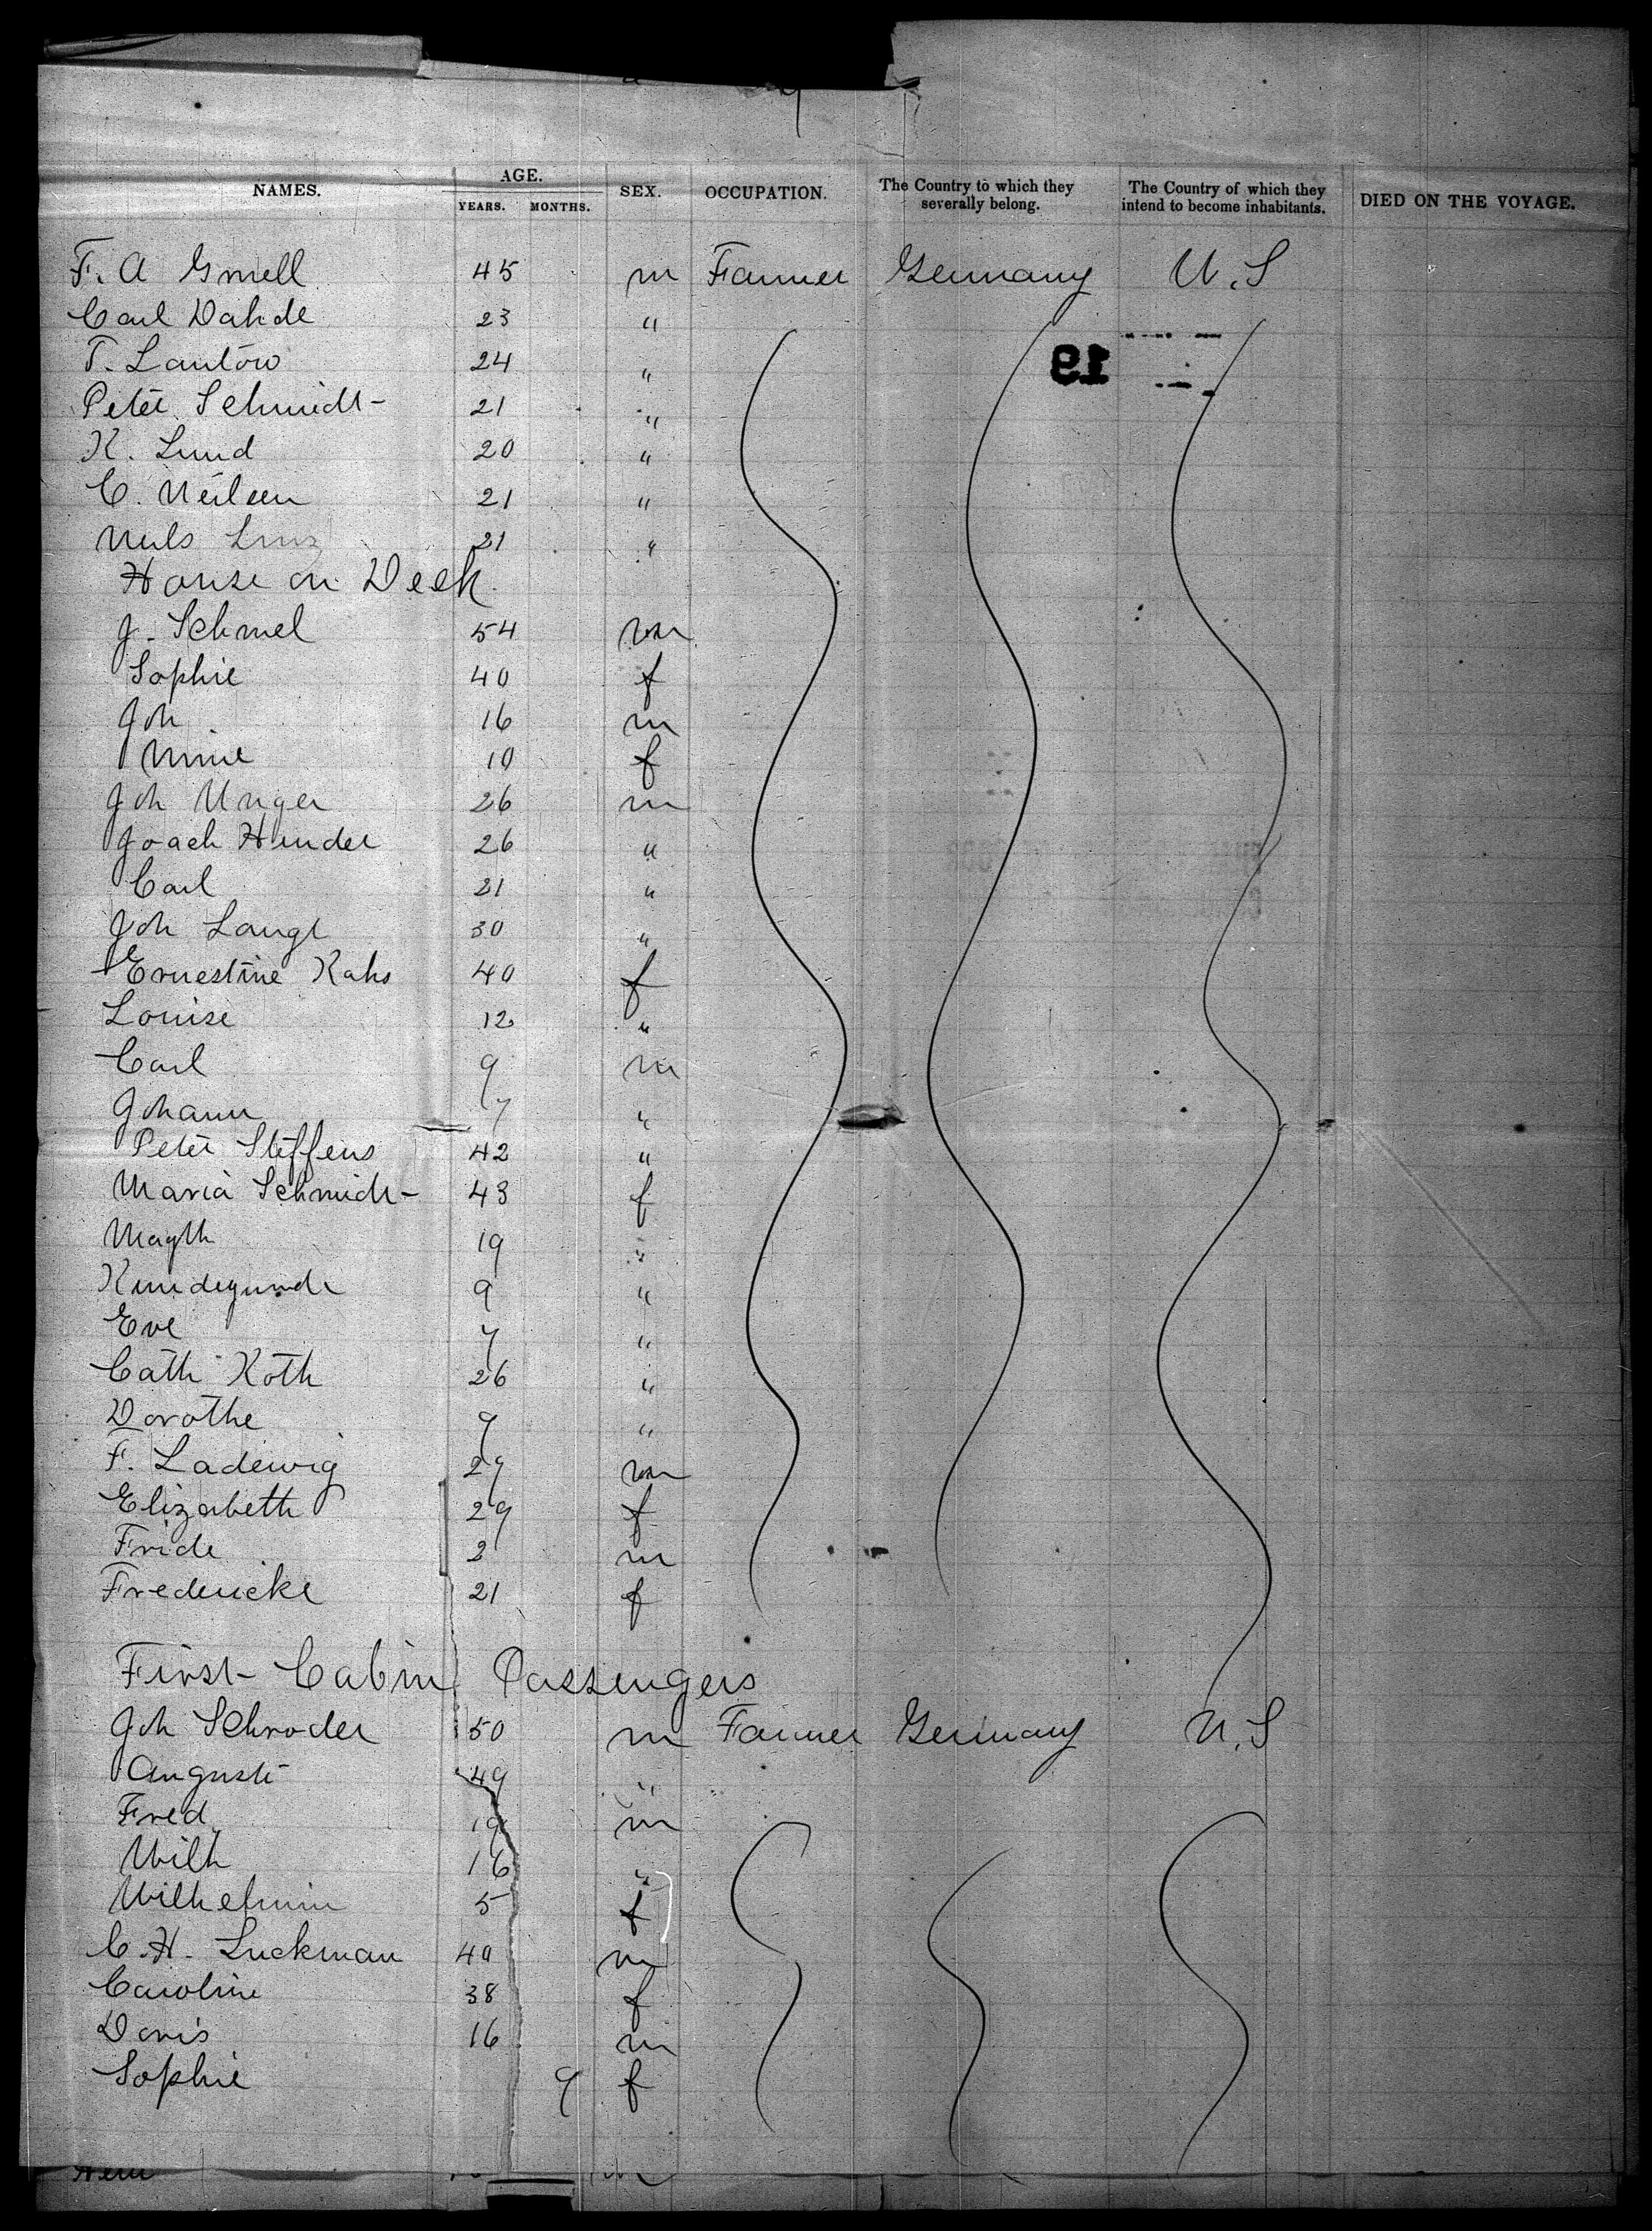 NAMES. AGE. YEARS. MONTHS. SEX. OCCUPATION. The Country to which they severally belong. The Country of which they intend to become inhabitants. DIED ON THE VOYAGE.
F. A Gmell 45 m Farmer Germany U.S
Carl Dahde 23 "
19
T. Lantow 24 "
Peter Schmidt 21 "
K. Lund 20 "
C. Neilsen 21 "
Nuls 21 "
House on Deck
J. Schmel 54 m
Sophie 40 f
Joh 16 m
Mine 10 f
Joh Unger 26 m
Joach Hunder 26 "
Carl 21 "
Joh Lange 30 "
Ernestine Kahs 40 f
Louise 12 "
Carl 9 m
Johann 7 "
Peter Steffens 42 "
Maria Schmidt 43 f
Magth 19 "
Kundegunde 9 "
Eve 7 "
Cath Koth 26 "
Dorothe 9 "
F. Ladewig 29 m
Elizabeth 29 f
Fride 2 m
Fredericke 21 f
First Cabin Passengers
Joh Schroder 50 m Farmer Germany U.S
August 49 "
Fred 19 m
Wilh 16 "
Wilhelmin 5 f
C. H. Luckman 40 m
Caroline 38 f
Doris 16 m
Sophie 9 f